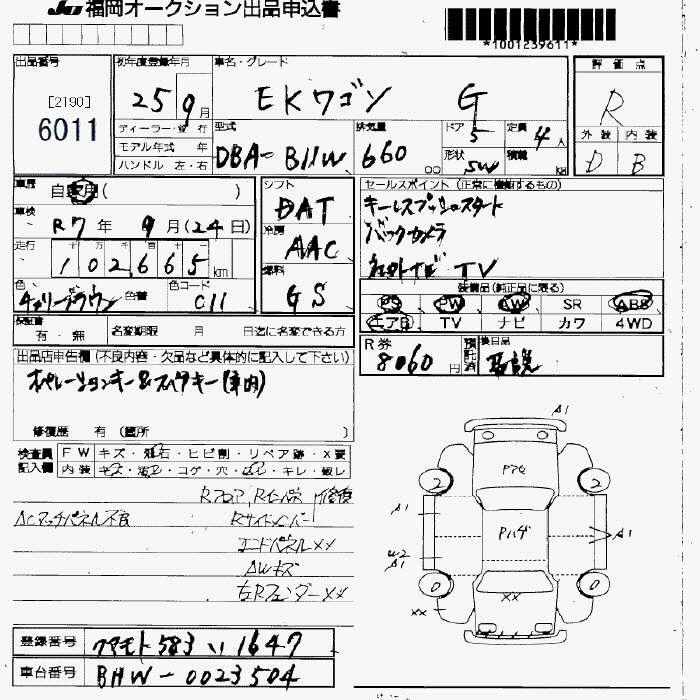 JU 福岡オークション出品申込書
*1001239611*
出品番号
[2190]
6011
初年度登録年月
25 9月
ディーラー・並行
モデル年式 年
ハンドル 左・右
車名・グレード
EKワゴン G
型式
DBA-B11W
排気量
660 CC
ドア
5
定員
4人
形状
SW
積載
評価点
R
外装 内装
D B
車歴
自家用( )
車検
R7年 9月(24日)
走行
102,665km
色
チェリーブラウン
色替
色コード
C11
シフト
DAT
冷房
AAC
燃料
GS
セールスポイント (正常に機能するもの)
キーレスプッシュスタート
バックカメラ
TV
装備品(純正品に限る)
PS PW AW SR ABS
エアB TV ナビ カワ 4WD
保証書
有・無
名変期限 月 日迄に名変できる方
R券
8060円
預託済
後日品
取説
出品店申告欄 (不良内容・欠品など具体的に記入して下さい)
オペレーションキー&スペアキー(車内)
修復歴 有 (箇所 )
検査員記入欄
FW キズ・飛石・ヒビ割・リペア跡・X要
内装 キズ・汚レ・コゲ・穴・ハゲ・キレ・破レ
Rフロア、Rインサイド修復
ACタッチパネル不良
Rサイドメンバー
エンドパネルXX
AWキズ
左RフェンダーXX
登録番号
クマモト 583 い 1647
車台番号
B11W-0023504
A1
Pアセ
2 2
A1
Pハゲ
A1
W2
A1
0 0
XX
XX